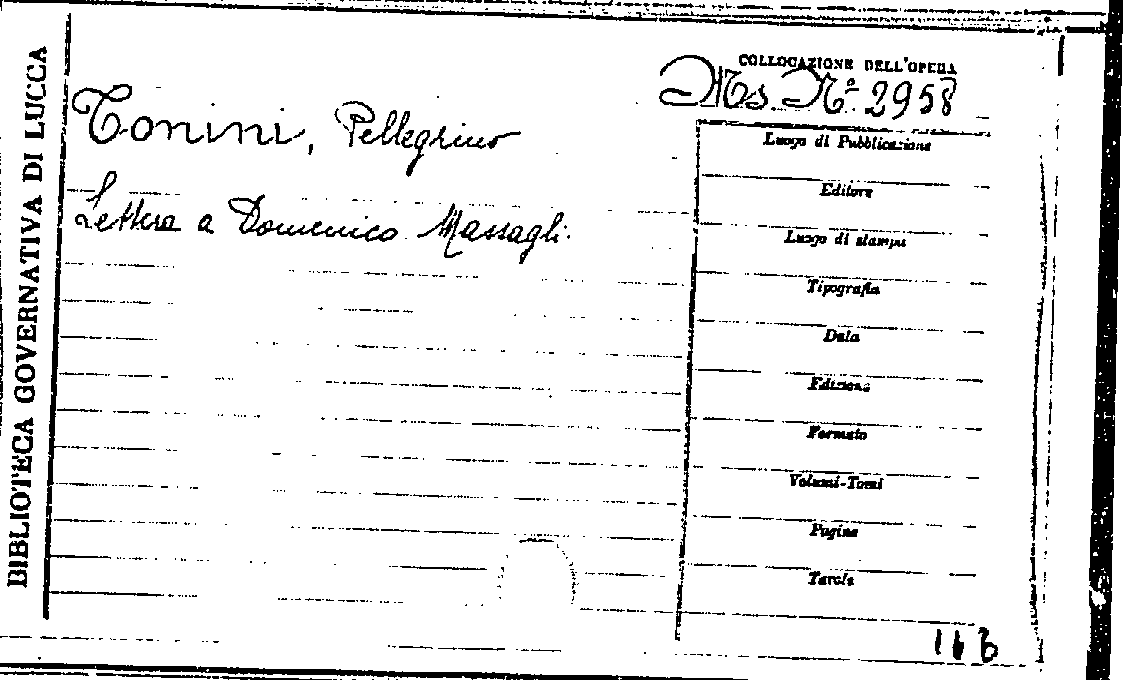 BIBLIOTECA GOVERNATIVA DI LUCCA
COLLOCAZIONE DELL'OPERA
Ms. Nº 2958
Tonini, Pellegrino
Lettera a Domenico Massagli.
Luogo di Pubblicazione
Editore
Luogo di stampa
Tipografia
Data
Edizione
Formato
Volumi-Tomi
Pagine
Tavole